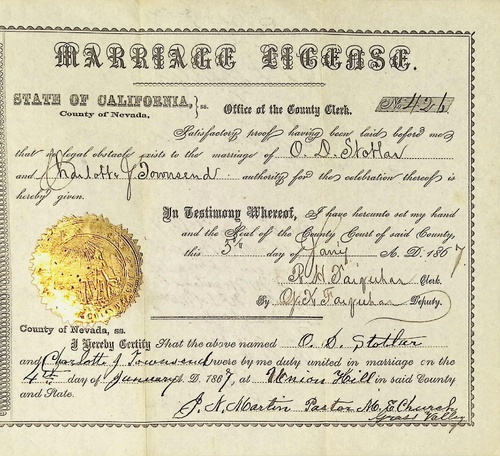 MARRIAGE LICENSE.
STATE OF CALIFORNIA, } ss. Office of the County Clerk. No 426
County of Nevada,
Satisfactory proof having been laid before me
that no legal obstacle exists to the marriage of O. D. Stotlar
and Charlotte J Townsend authority for the celebration thereof is
hereby given.
In Testimony Whereof, I have hereunto set my hand
and the Seal of the County Court of said County,
this 5th day of Jany A. D. 1867
R. H. Farquhar Clerk.
By Farquhar Deputy.
County of Nevada, ss.
I Hereby Certify That the above named O. D. Stotlar
and Charlotte J. Townsend were by me duly united in marriage on the
4th day of January A. D. 1867, at Union Hill in said County
and State.
J. N. Martin Pastor M. E. Church
Grass Valley